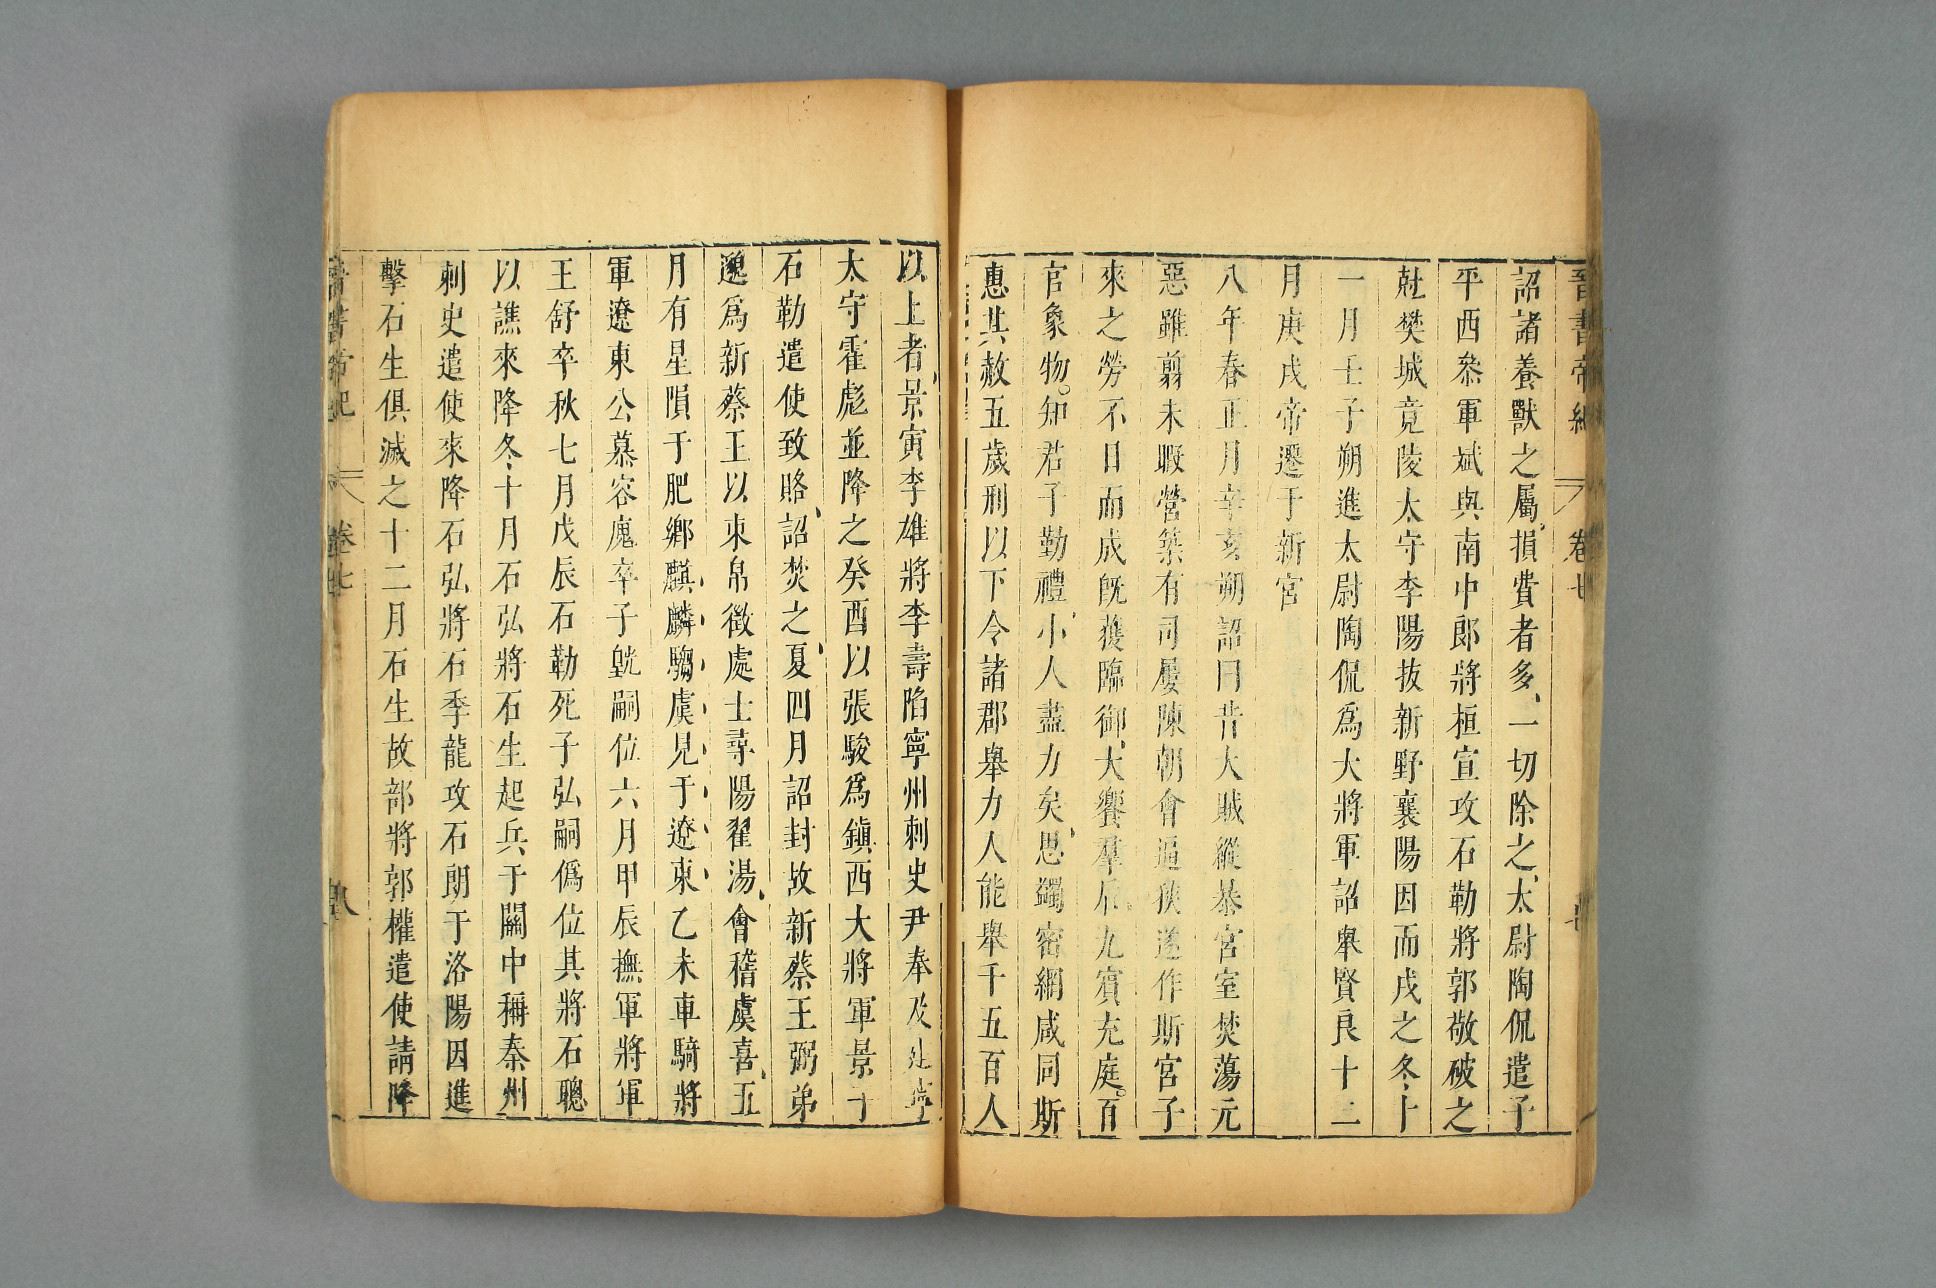 晉書帝紀 卷七
詔諸養獸之屬損費者多、一切除之、太尉陶侃遣子
平西叅軍斌與南中郎將桓宣攻石勒將郭敬破之
尅樊城竟陵太守李陽拔新野襄陽因而戍之冬十
一月壬子朔進太尉陶侃爲大將軍詔舉賢良十二
月庚戌帝遷于新宮
八年春正月辛亥朔詔曰昔大賊縱暴宮室焚蕩元
惡雖翦未暇營築有司屢陳朝會逼狹遂作斯宮子
來之勞不日而成旣獲臨御、大饗羣后九賓充庭。百
官象物。知君子勤禮、小人盡力矣、思蠲密網咸同斯
惠其赦五歲刑以下令諸郡舉力人能舉千五百人
以上者、景寅李雄將李壽陷寧州刺史尹奉及建寧
太守霍彪並降之癸酉以張駿爲鎮西大將軍景子
石勒遣使致賂、詔焚之、夏四月詔封故新蔡王弼弟
邈爲新蔡王以束帛徵處士尋陽翟湯、會稽虞喜、五
月有星隕于肥鄉麒麟騶虞見于遼東乙未車騎將
軍遼東公慕容廆卒子皝嗣位六月甲辰撫軍將軍
王舒卒秋七月戊辰石勒死子弘嗣僞位其將石聰
以譙來降冬十月石弘將石生起兵于關中稱秦州
刺史遣使來降石弘將石季龍攻石朗于洛陽因進
擊石生俱滅之十二月石生故部將郭權遣使請降
晉書帝紀 卷七 八